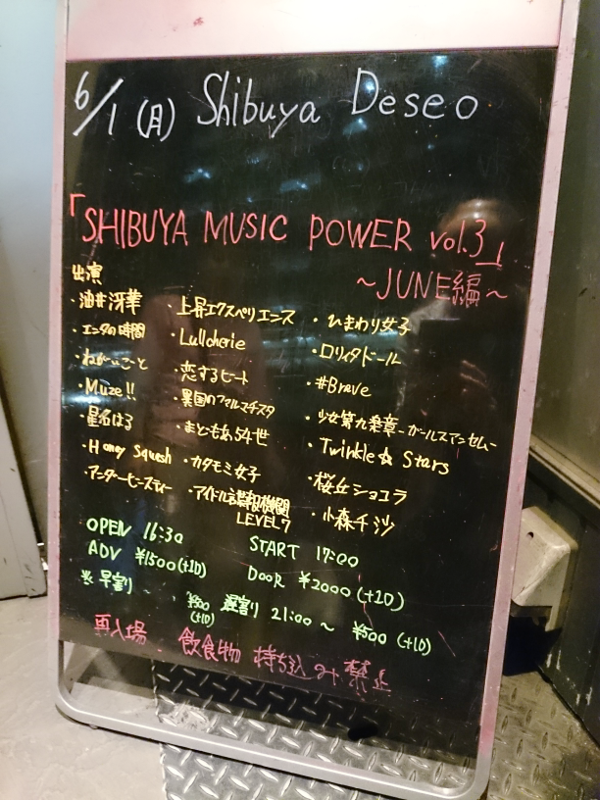 6/1 (月) Shibuya Deseo
「SHIBUYA MUSIC POWER vol.3」
～JUNE編～
出演
・油井冴華
エニタの時間
・ねがいごと
・Muze!!
・星名はる
・Honey Squash
・アンダービースティー
・上昇エクスペリエンス
・Lullcherie
・恋するビート
・異国のファルマチスタ
・まともあ54世
・カタモミ女子
・アイドル諜報機関
LEVEL7
・ひまわり女子
・ロリィタドール
・#Brave
・少女第九楽章-ガールズアンセム-
・Twinkle☆Stars
・桜丘ショコラ
・小森千沙
OPEN 16:30 START 17:00
ADV ¥1500(+1D) DOOR ¥2000(+1D)
※早割 ¥500 (+1D) 遅割り 21:00～ ¥500 (+1D)
再入場、飲食物 持ち込み 禁止